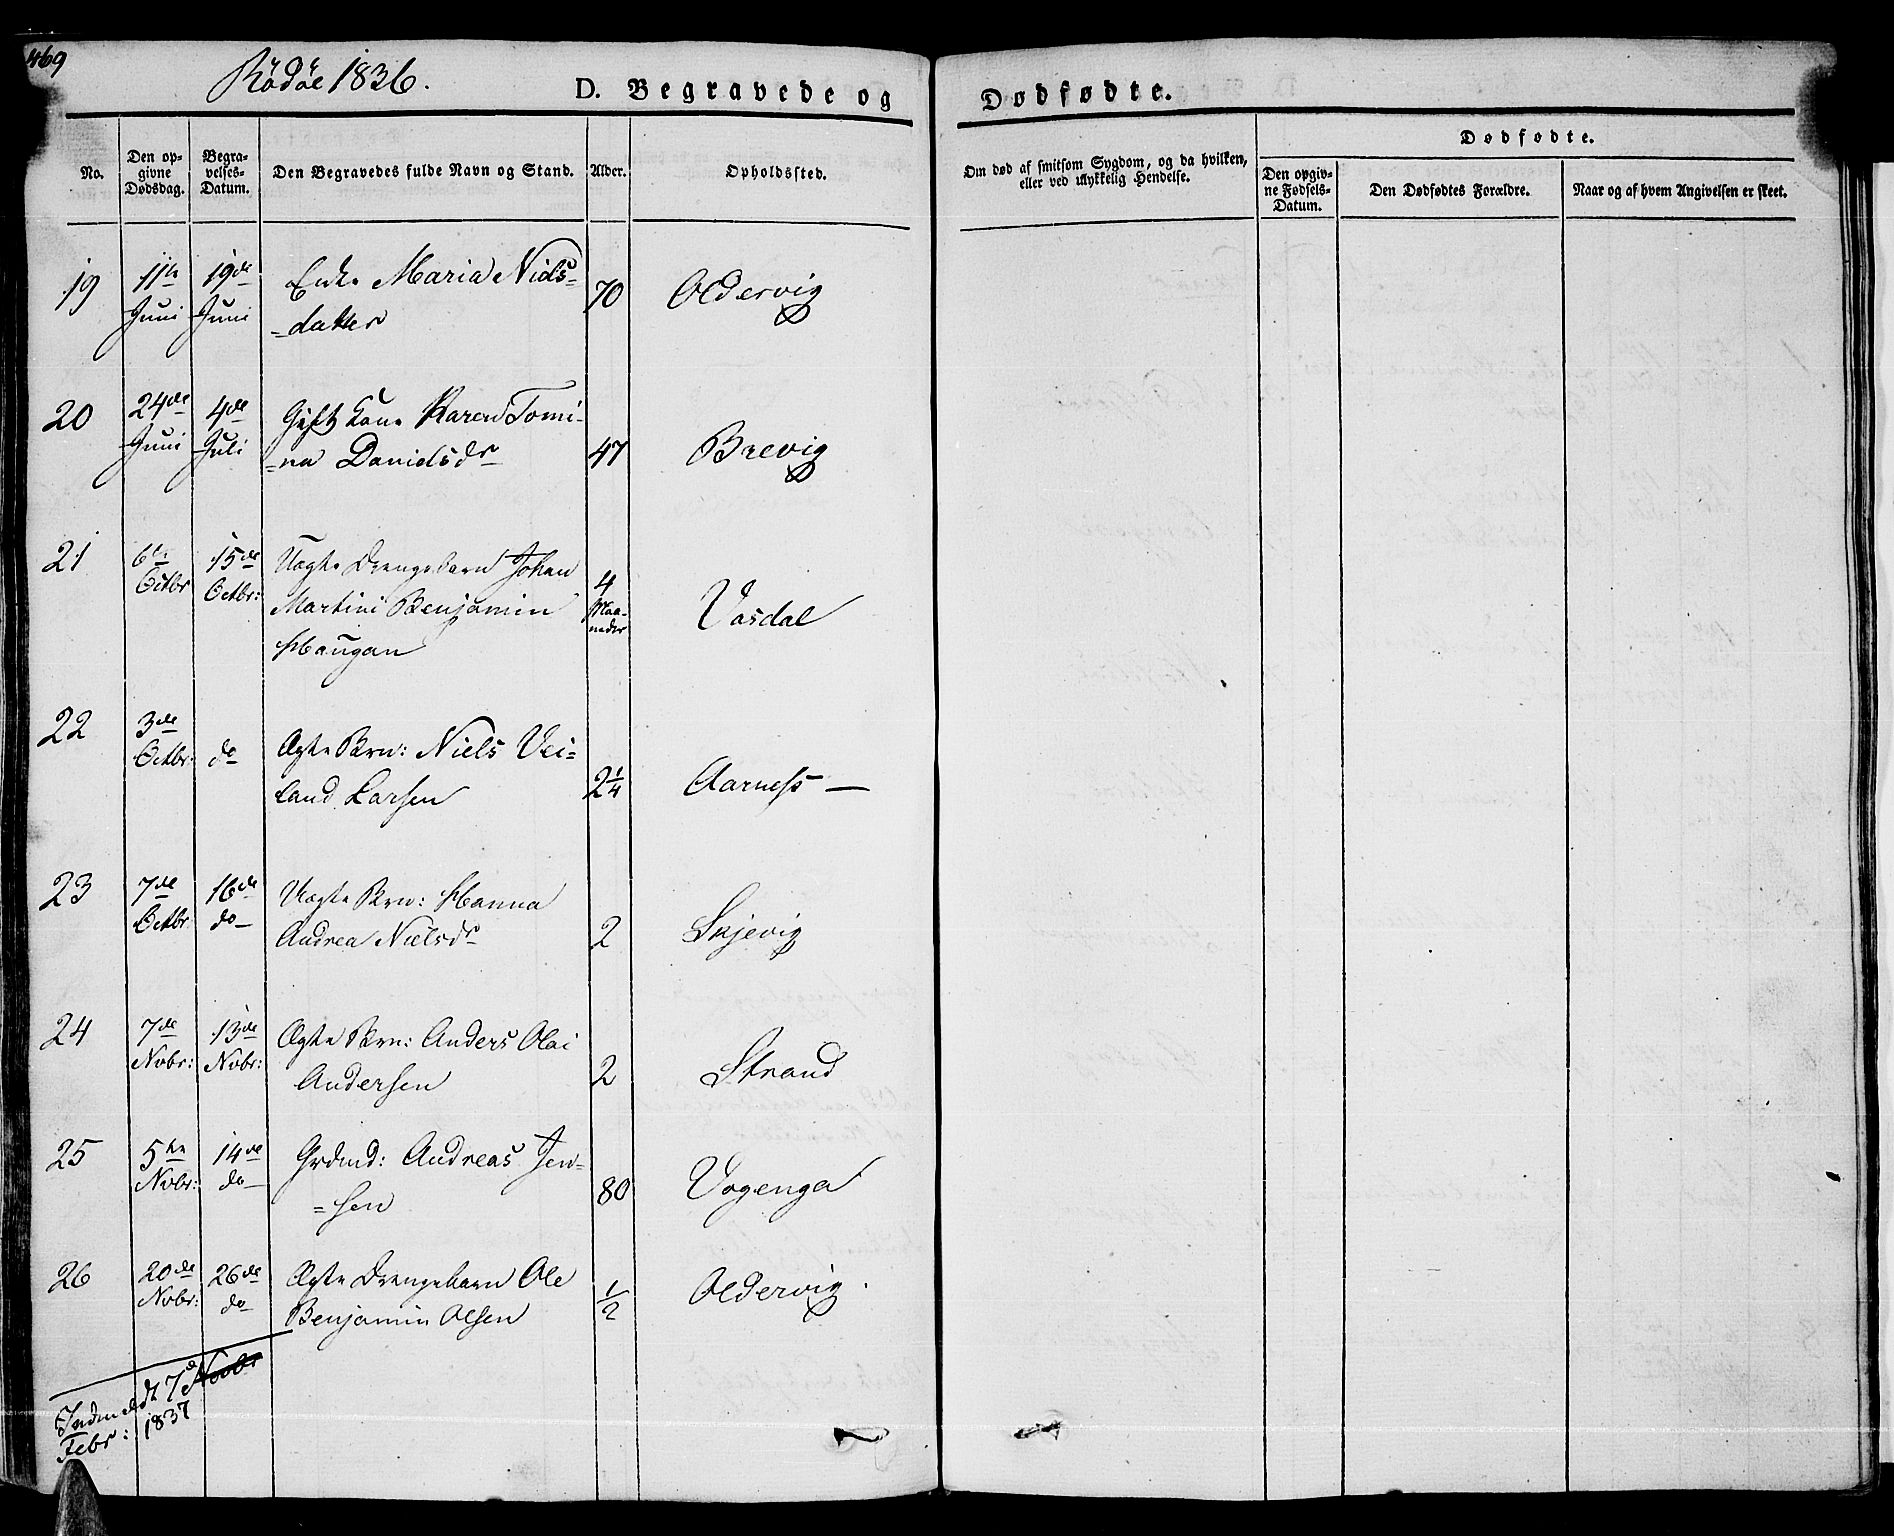 469
Rödöe 1836.
D. Begravede og
Dødfødte.
No.
Den op-
givne
Dødsdag.
Begra-
velses-
Datum.
Den Begravedes fulde Navn og Stand.
Alder.
Opholdssted.
Om død af smitsom Sygdom, og da hvilken,
eller ved ulykkelig Hendelse.
Dødfødte.
Den opgiv-
ne Fødsels-
Datum.
Den Dødfødtes Forældre.
Naar og af hvem Angivelsen er skeet.
19
11te
Juni
19de
Juni
Enke Maria Niels-
=datter
70
Oldervig
20
24de
Juni
4de
Juli
Gift Kone Karen Tomi-
=na Danielsdr
47
Brevig
21
6te
Octbr
15de
Octbr:
Uægte Drengebarn Johan
Martini Benjamin
Haugan
4
Maa-
neder
Vasdal
22
3de
Octbr:
do
Ægte Brn: Niels Vei-
land Larsen
2 1/4
Aarness —
23
7de
Octbr
16de
do
Uægte Brn: Hanna
Andrea Nielsdr
2
Skjevig
24
7de
Nobr:
13de
Nobr:
Ægte Brn: Anders Olai
Andersen
2
Strand
25
5te
Nobr:
14de
do
Grdmd: Andreas Jen-
=sen
80
Vogenga
26
20de
Nobr:
26de
do
Ægte Drengebarn Ole
Benjamin Olsen
1/2
Oldervig.
Indmeldt 7de Novbr
Febr: 1837